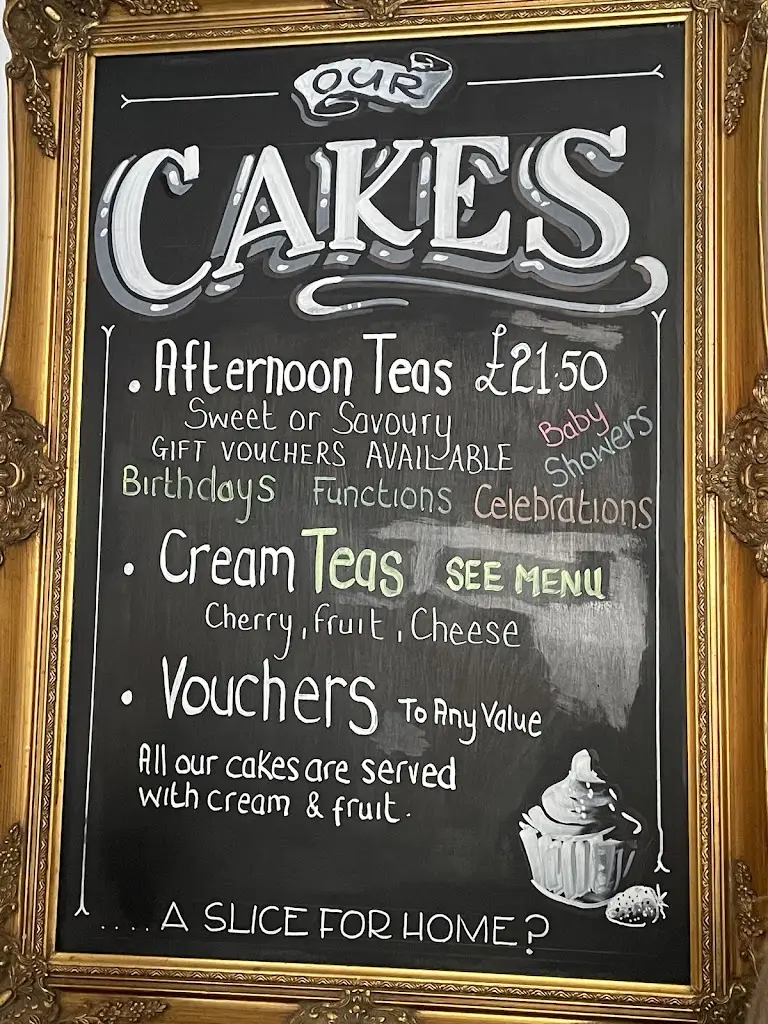 OUR
CAKES
. Afternoon Teas £21.50
Sweet or Savoury
GIFT VOUCHERS AVAILABLE
Baby
Showers
Birthdays Functions Celebrations
. Cream Teas SEE MENU
Cherry, Fruit, Cheese
. Vouchers To Any Value
All our cakes are served
with cream & fruit.
.... A SLICE FOR HOME?